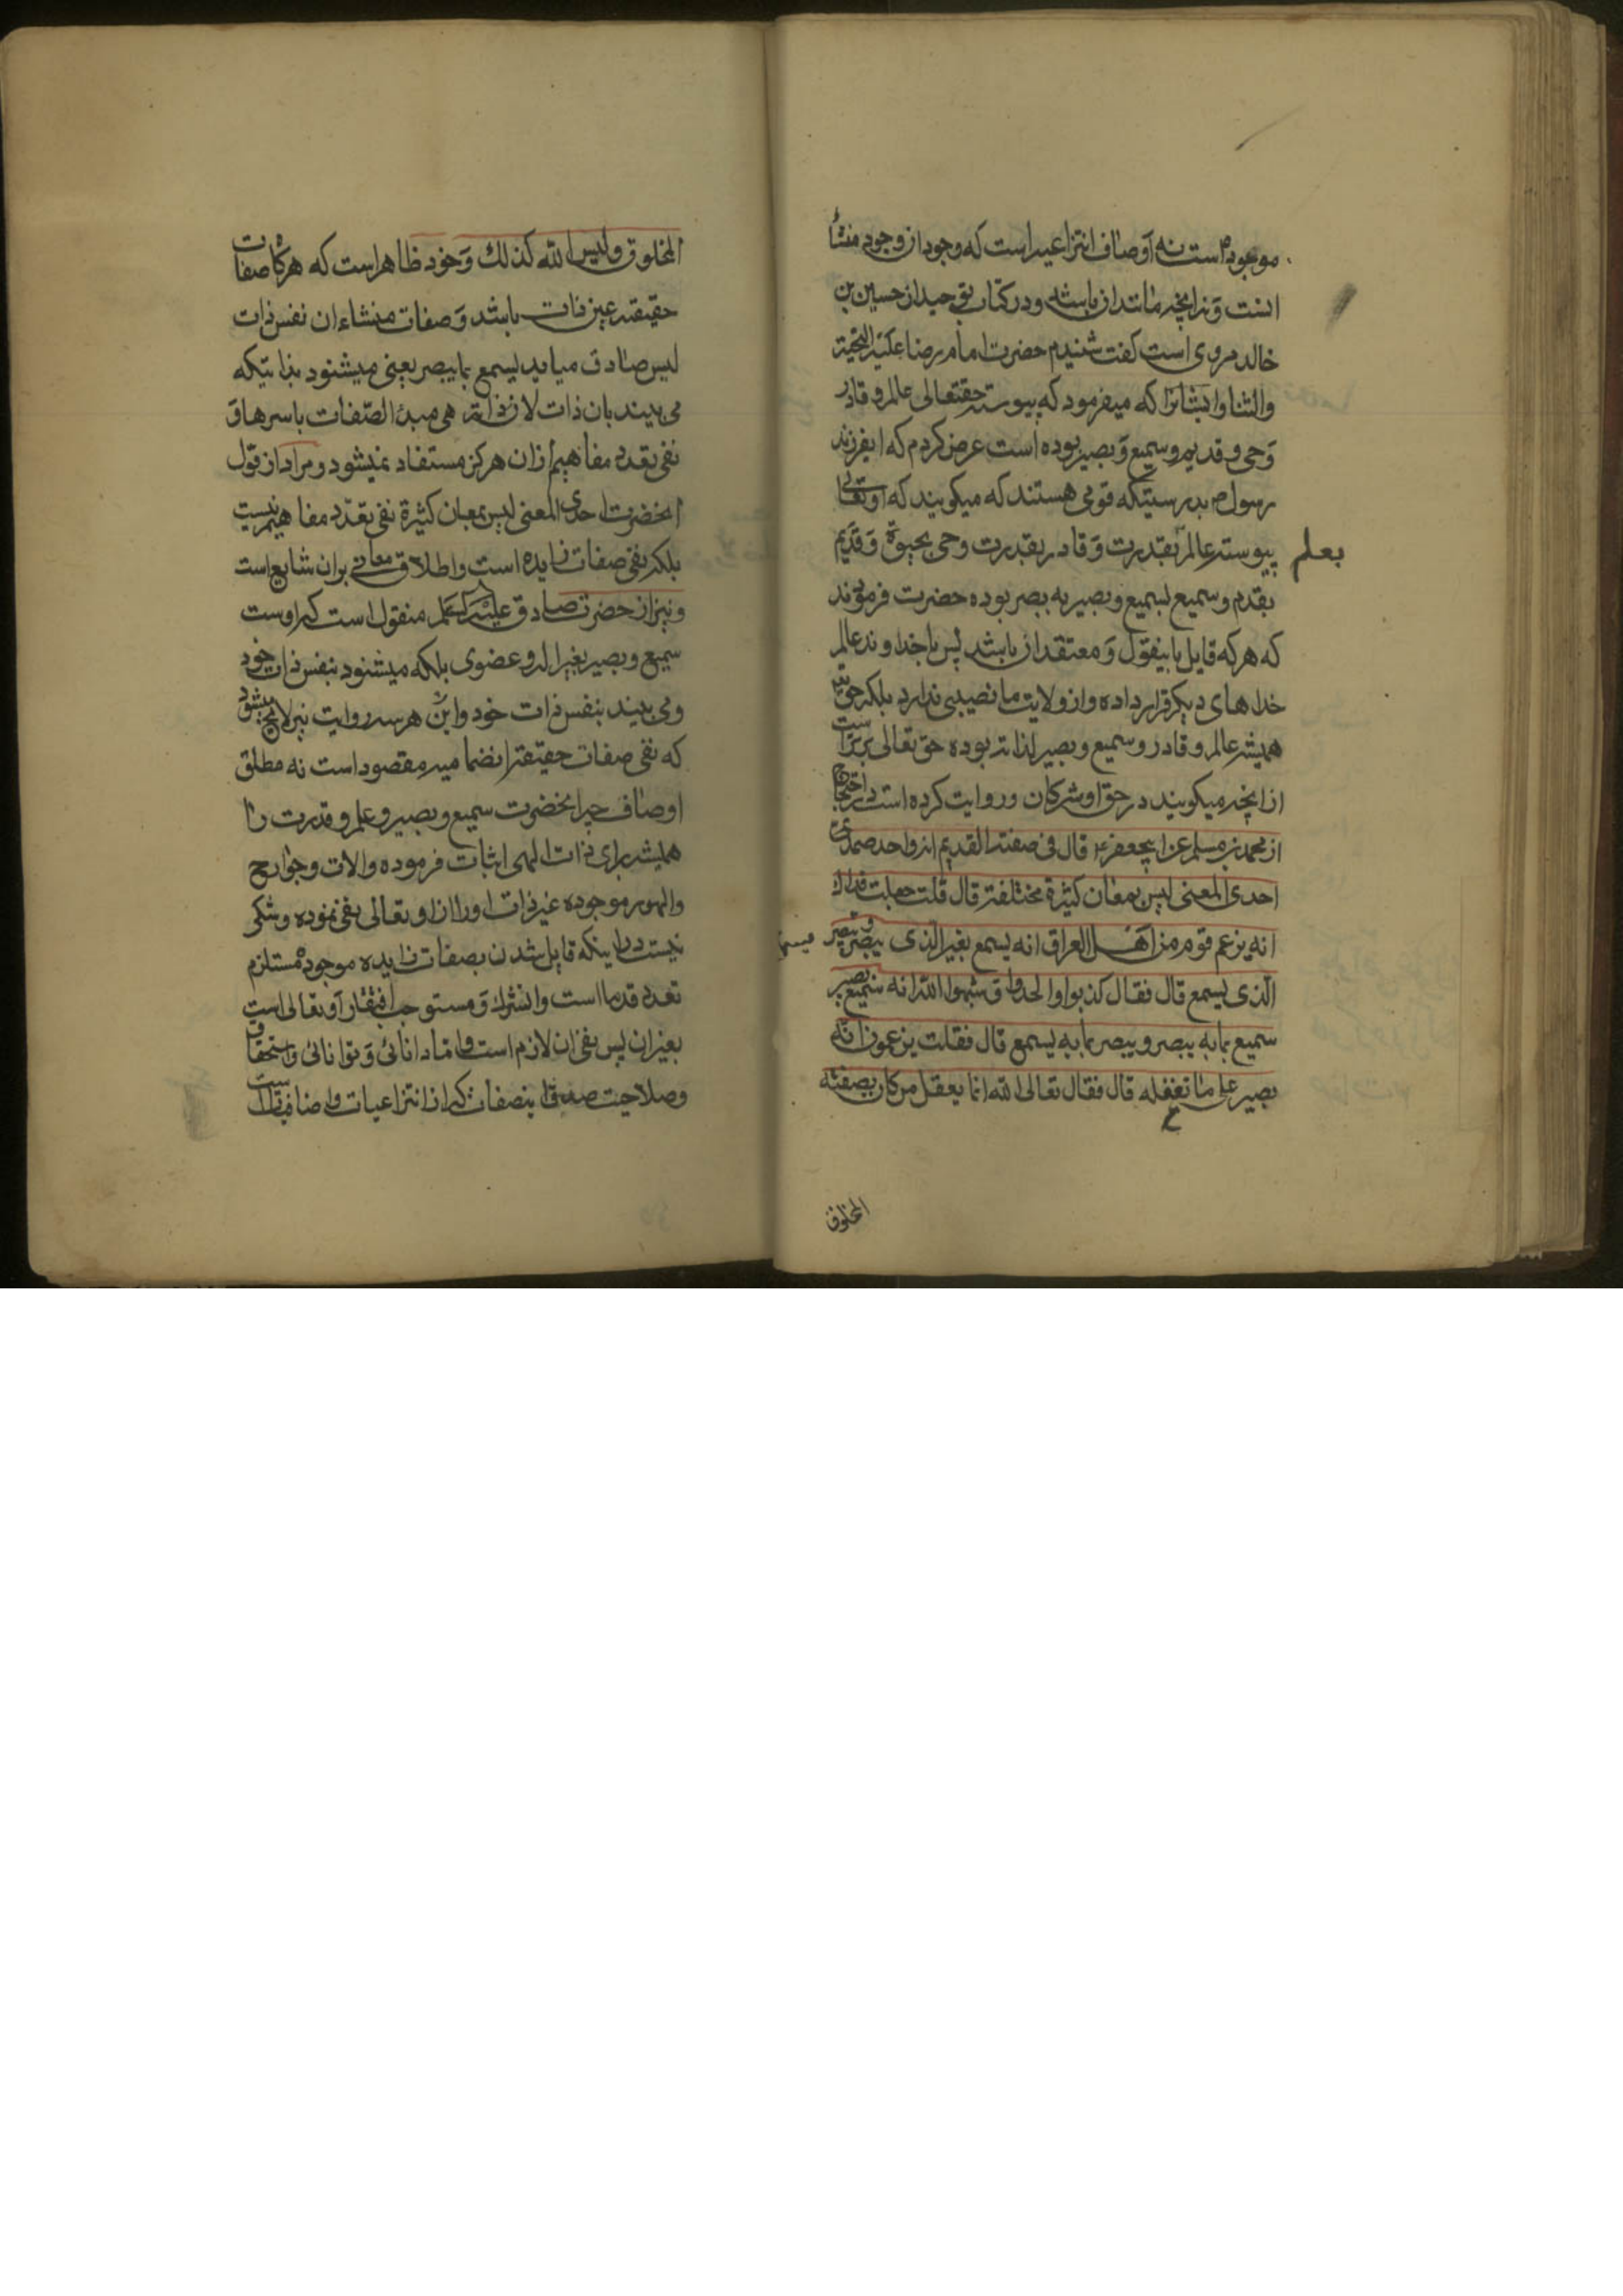 موجوده است نه اوصاف انتزاعیه است که وجود از وجود منشأ
انست و نه انچه مانند ان باشد و در کتاب توحید از حسین بن
خالد مروی است گفت شنیدم حضرت امام رضا علیه التحیة
والثنا را که میفرمود که پیوسته حقتعالی عالم و قادر
و حی و قدیم و سمیع و بصیر بوده است عرض کردم که ایفرزند
رسول ص بدرستیکه قومی هستند که میکویند که او تعالی
پیوسته عالم بقدرت و قادر بقدرت و حی بحیوة و قدیم
بعلم
بقدم و سمیع بسمیع و بصیر به بصر بوده حضرت فرمودند
که هر که قایل باینقول و معتقد ان باشد پس با خداوند عالم
خداهای دیکر قرار داده و از ولایت ما نصیبی ندارد بلکه حق
همیشه عالم و قادر و سمیع و بصیر لذاته بوده حق تعالی برتر است
از انچه میکویند در حق او مشرکان و روایت کرده است در احتجاج
از محمد بن مسلم عن ابیجعفر ع قال فی صفة القدیم انه واحد صمدی
احدی المعنی لیس بمعان کثیرة مختلفة قال قلت جعلت فداک
انه یزعم قوم من اهل العراق انه یسمع بغیر الذی یبصر و یبصر بغیر
الذی یسمع قال فقال کذبوا و الحدوا و شبهوا الله انه سمیع بصیر
سمیع بما به یبصر و یبصر بما به یسمع قال فقلت یزعمون انه
بصیر علی ما تعقله قال فقال تعالی الله انما یعقل من کان بصفته
المخلوق
المخلوق و لیس الله کذلک و خود ظاهر است که هر کاه صفات
حقیقة عین ذات باشد و صفات منشاء ان نفس ذات
لیس صادق میاید یسمع بما یبصر یعنی میشنود بذاتیکه
می بیند بان ذات لان ذاته هی مبدأ الصفات باسرها و
نفی تعدد مفاهیم از ان هرکز مستفاد نمیشود و مراد از قول
انحضرت احدی المعنی لیس بمعان کثیرة نفی تعدد مفاهیم نیست
بلکه نفی صفات زایده است و اطلاق معانی بران شایع است
و نیز از حضرت صادق علیه السلام منقول است که اوست
سمیع و بصیر بغیر اله و عضوی بلکه میشنود بنفس ذات خود
و می بیند بنفس ذات خود و این هر سه روایت نیز لایح میشود
که نفی صفات حقیقة انضمامیه مقصود است نه مطلق
اوصاف چه انحضرت سمیع و بصیر و علم و قدرت را
همیشه برای ذات الهی اثبات فرموده و الات و جوارح
و امور موجوده غیر ذات او را از او تعالی نفی نموده و شکی
نیست در اینکه قایل شدن بصفات زایده موجوده مستلزم
تعدد قدما است و اشتراک و مستوجب افتقار او تعالی است
بغیر ان پس نفی ان لازم است و اما دانائی و توانائی و استحقاق
و صلاحیت صدق اینصفات که از انتزاعیات و اضافیات است